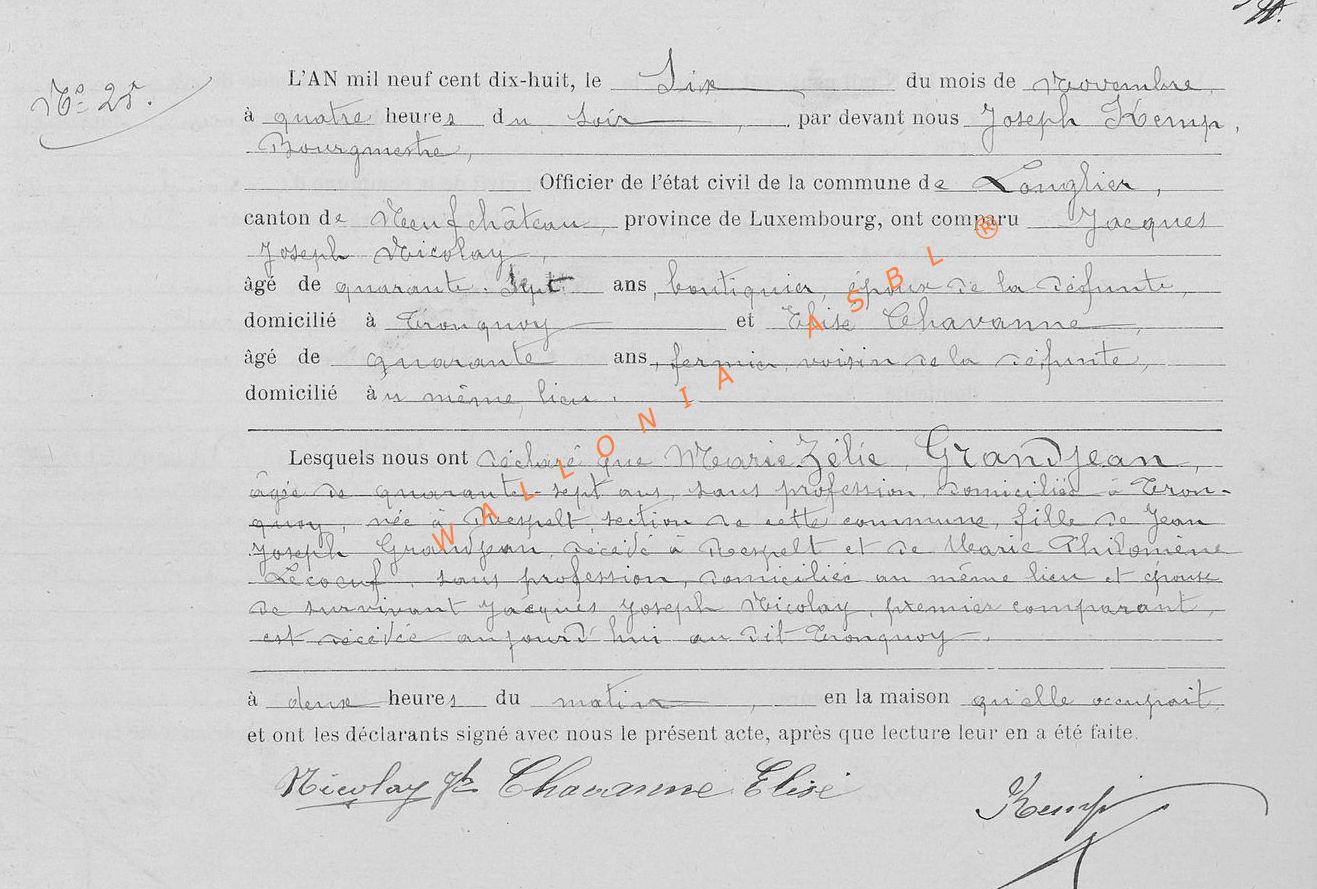 Nº 25.
L'AN mil neuf cent dix-huit, le Six du mois de Novembre,
à quatre heures du soir, par devant nous Joseph Kemp,
Bourgmestre,
Officier de l'état civil de la commune de Longlier,
canton de Neufchâteau, province de Luxembourg, ont comparu Jacques
Joseph Nicolay,
âgé de quarante-sept ans, boutiquier, époux de la défunte,
domicilié à Tronquoy et Elise Chavanne,
âgé de quarante ans, fermier, voisin de la défunte,
domicilié au même lieu.
Lesquels nous ont déclaré que Marie Zélie Grandjean,
âgée de quarante-sept ans, sans profession, domiciliée à Tron-
quoy, née à Respelt, section de cette commune, fille de Jean
Joseph Grandjean, décédé à Respelt et de Marie Philomène
Lecoeuf, sans profession, domiciliée au même lieu et épouse
de survivant Jacques Joseph Nicolay, premier comparant,
est décédée aujourd'hui au dit Tronquoy.
à deux heures du matin, en la maison qu'elle occupait,
et ont les déclarants signé avec nous le présent acte, après que lecture leur en a été faite.
Nicolay Jh Chavanne Elise
Kemp
WALLONIA ASBL ®